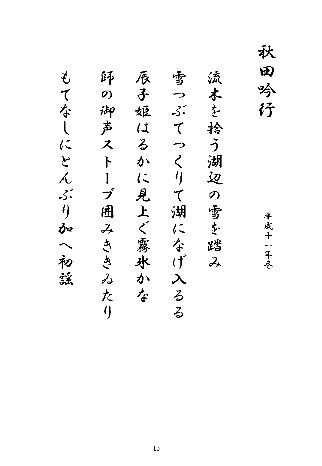 秋田吟行
平成十一年冬
流木を拾う湖辺の雪を踏み
雪つぶてつくりて湖になげ入るる
辰子姫はるかに見上ぐ霧氷かな
師の御声ストーブ囲みききゐたり
もてなしにとんぶり加へ初謡